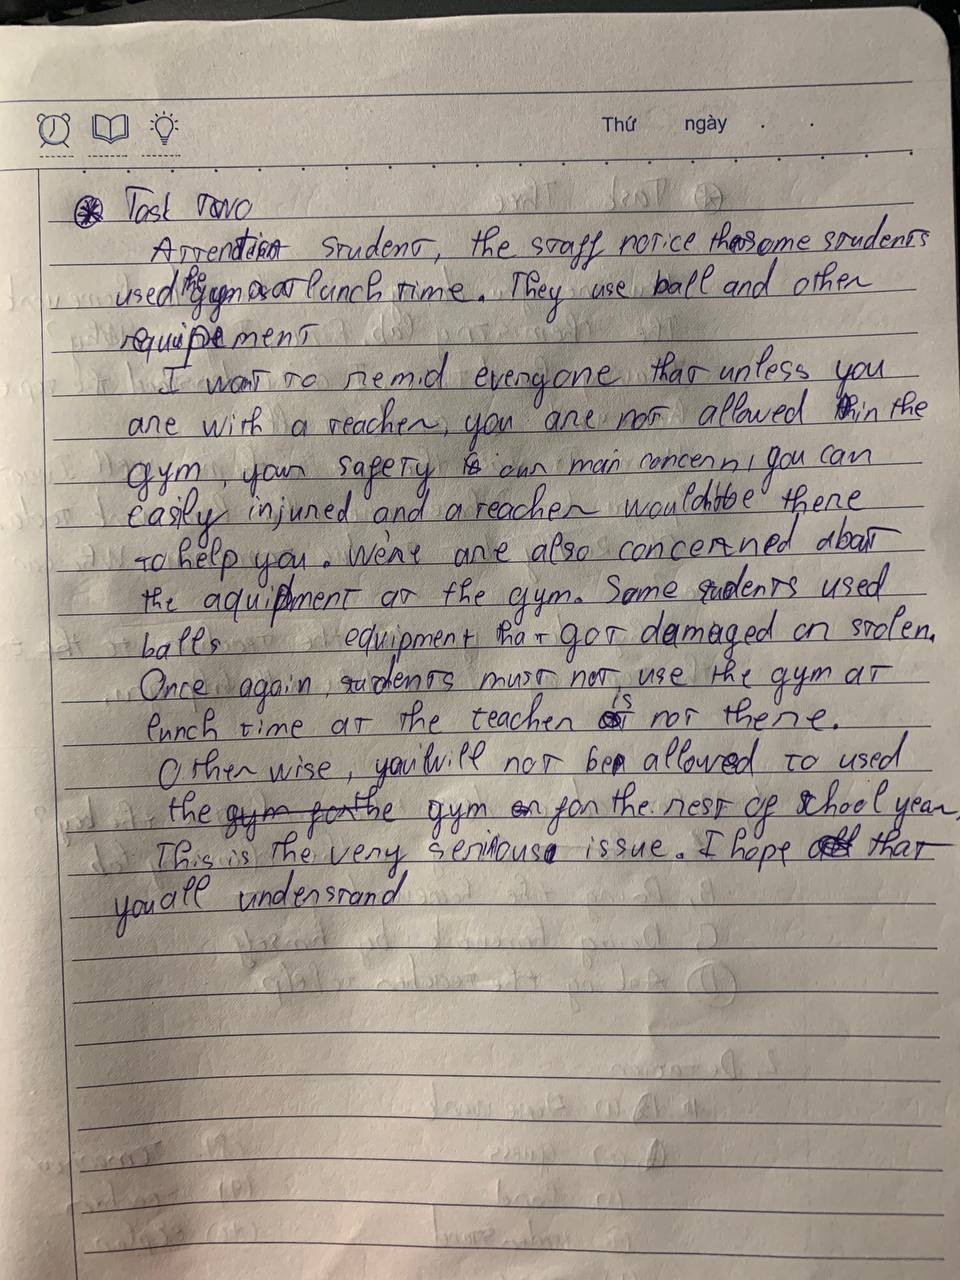 Thứ ngày . .
Task Two
Attention student, the staff notice the some students
used the gym at lunch time. They use ball and other
equipement
I wat to remid everyone that unless you
are with a teacher, you are not allowed in the
gym, your safety is our main concern, you can
easily injured and a teacher would be there
to help you. We're are also concerned abat
the aquipment at the gym. Some students used
balls equipment that got damaged or stolen.
Once again, students must not use the gym at
lunch time at the teacher is not there.
Other wise, you will not be allowed to used
the gym for the rest of school year,
This is the very serious issue. I hope that
you all understand